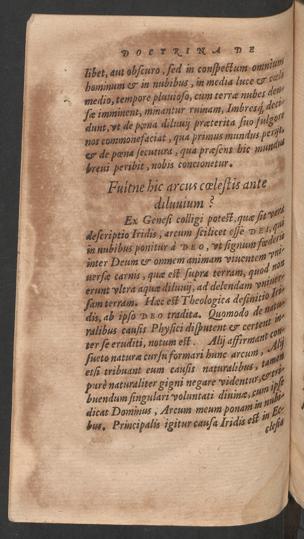 DOCTRINA DE
libet, aut obscuro, sed in conspectum omnium
hominum & in nubibus, in media luce & cœli
medio, tempore pluvioso, cum terræ nubes den-
sæ imminent, minantur ruinam, Imbresq́; deci-
dunt, vt de pœna diluuij præterita suo fulgore
nos commonefaciat, qua primus mundus perijt,
& de pœna secutura, qua præsens hic mundus
breui peribit, nobis concionetur.
Fuitne hic arcus cœlestis ante
diluuium?
Ex Genesi colligi potest, quæ sit vera
descriptio Iridis, arcum scilicet esse DEI, qui
in nubibus ponitur à DEO, vt signum fœderis
inter Deum & omnem animam viuentem vni-
uersæ carnis, quæ est supra terram, quod non
erunt vltra aquæ diluuij, ad delendam vniuer-
sam terram. Hæc est Theologica definitio Iri-
dis, ab ipso DEO tradita. Quomodo de natu-
ralibus causis Physici disputent & certent in-
ter se eruditi, notum est. Alij affirmant con-
sueto naturæ cursu formari hunc arcum, Alij
etsi tribuant eum causis naturalibus, tamen
purè naturaliter gigni negare videntur, & tri-
buendum singulari voluntati diuinæ, cum ipse
dicat Dominus, Arcum meum ponam in nubi-
bus. Principalis igitur causa Iridis est in Ec-
clesia